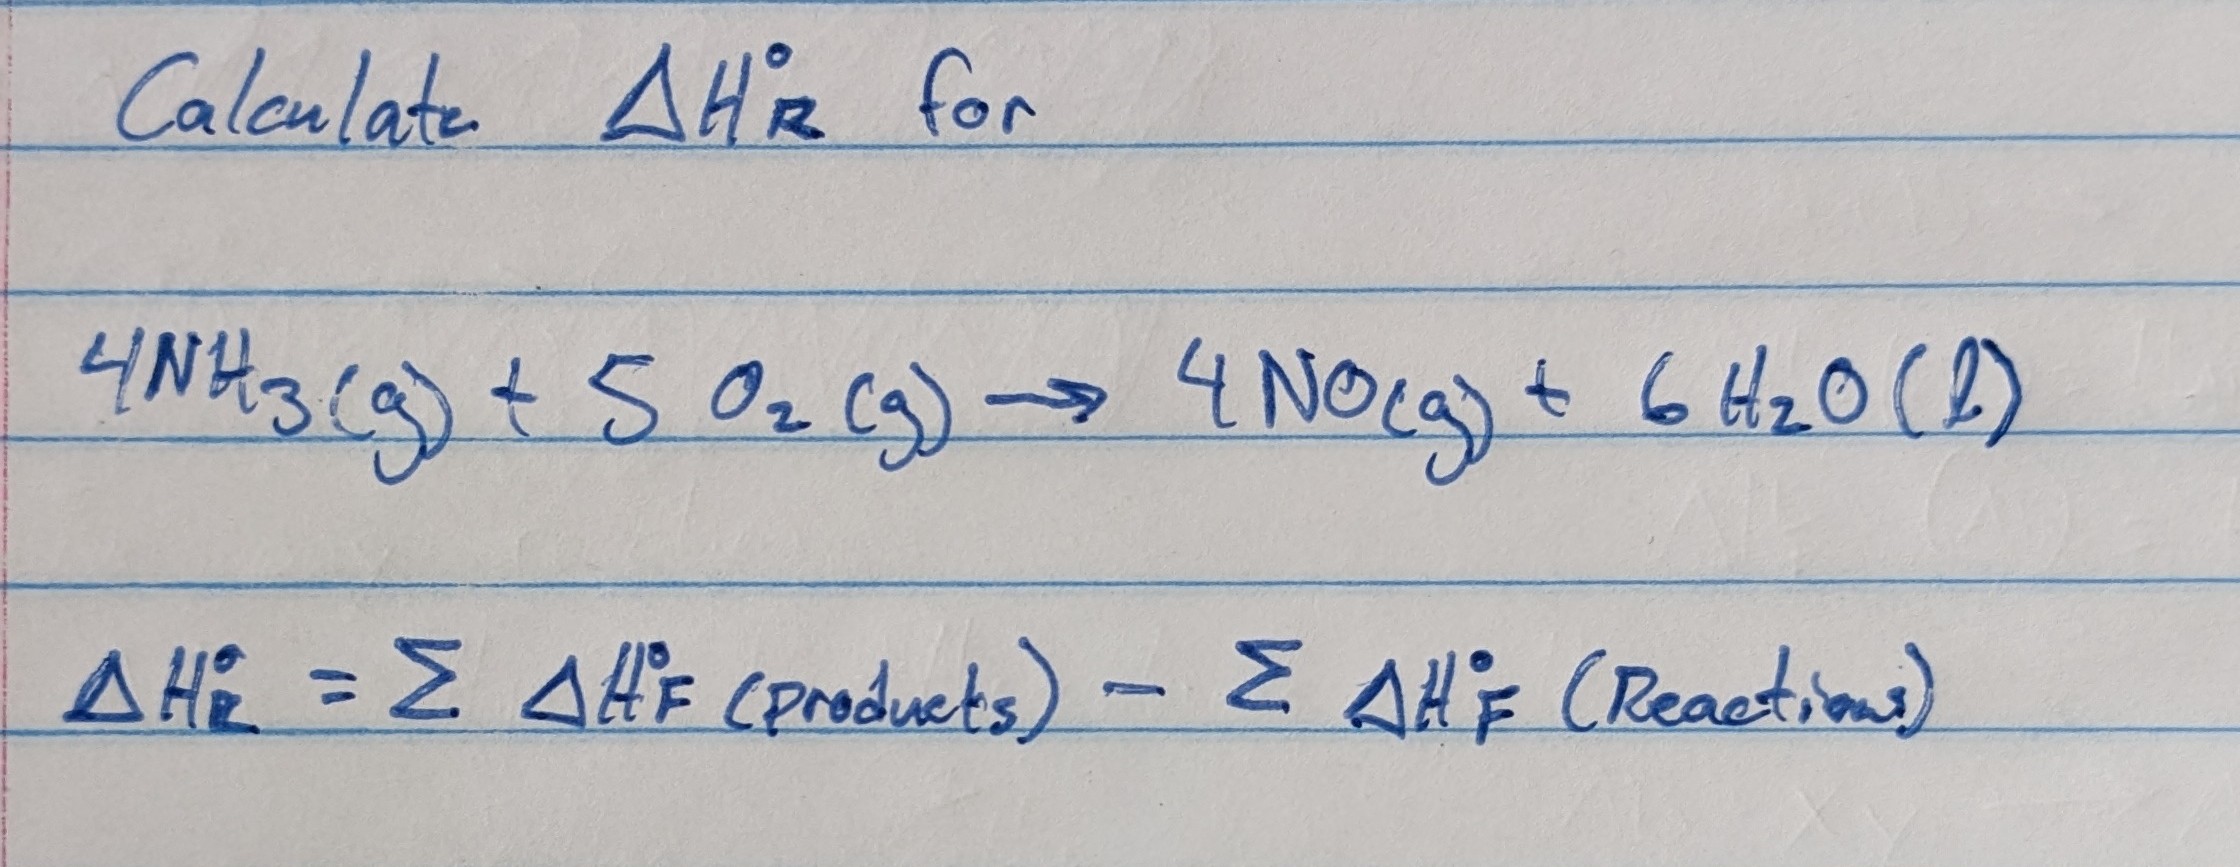 Calculate ΔH°R for
4NH₃(g) + 5 O₂ (g) → 4NO(g) + 6 H₂O (l)
ΔH°R = Σ ΔH°F (products) - Σ ΔH°F (Reactions)